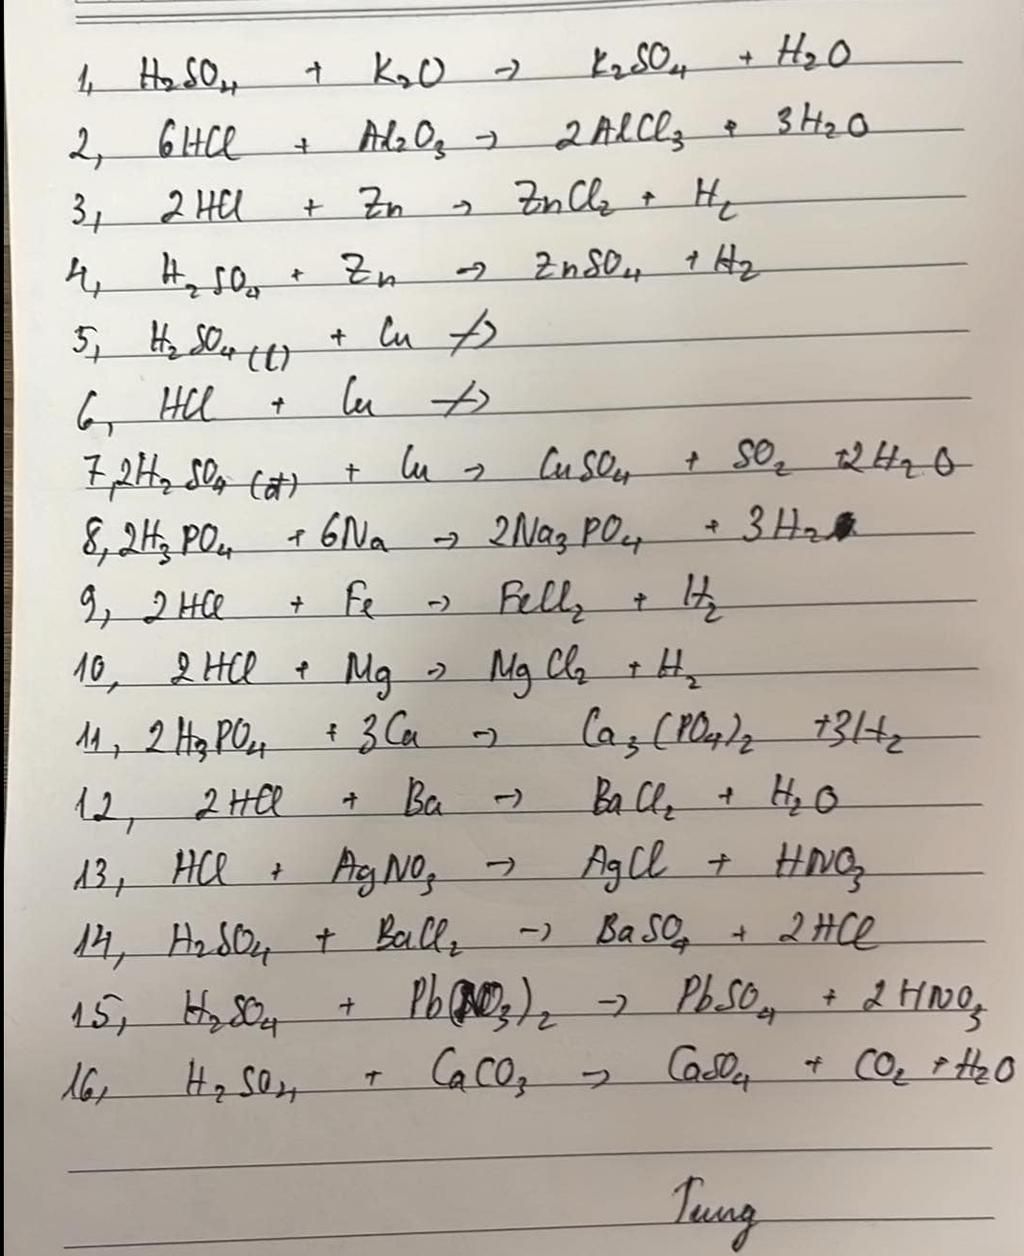 1, H₂SO₄ + K₂O → K₂SO₄ + H₂O
2, 6HCl + Al₂O₃ → 2AlCl₃ + 3H₂O
3, 2HCl + Zn → ZnCl₂ + H₂
4, H₂SO₄ + Zn → ZnSO₄ + H₂
5, H₂SO₄(l) + Cu ↛
6, HCl + Cu ↛
7, 2H₂SO₄ (đ) + Cu → CuSO₄ + SO₂ + 2H₂O
8, 2H₃PO₄ + 6Na → 2Na₃PO₄ + 3H₂
9, 2HCl + Fe → FeCl₂ + H₂
10, 2HCl + Mg → MgCl₂ + H₂
11, 2H₃PO₄ + 3Ca → Ca₃(PO₄)₂ + 3H₂
12, 2HCl + Ba → BaCl₂ + H₂O
13, HCl + AgNO₃ → AgCl + HNO₃
14, H₂SO₄ + BaCl₂ → BaSO₄ + 2HCl
15, H₂SO₄ + Pb(NO₃)₂ → PbSO₄ + 2HNO₃
16, H₂SO₄ + CaCO₃ → CaSO₄ + CO₂ + H₂O
Tung